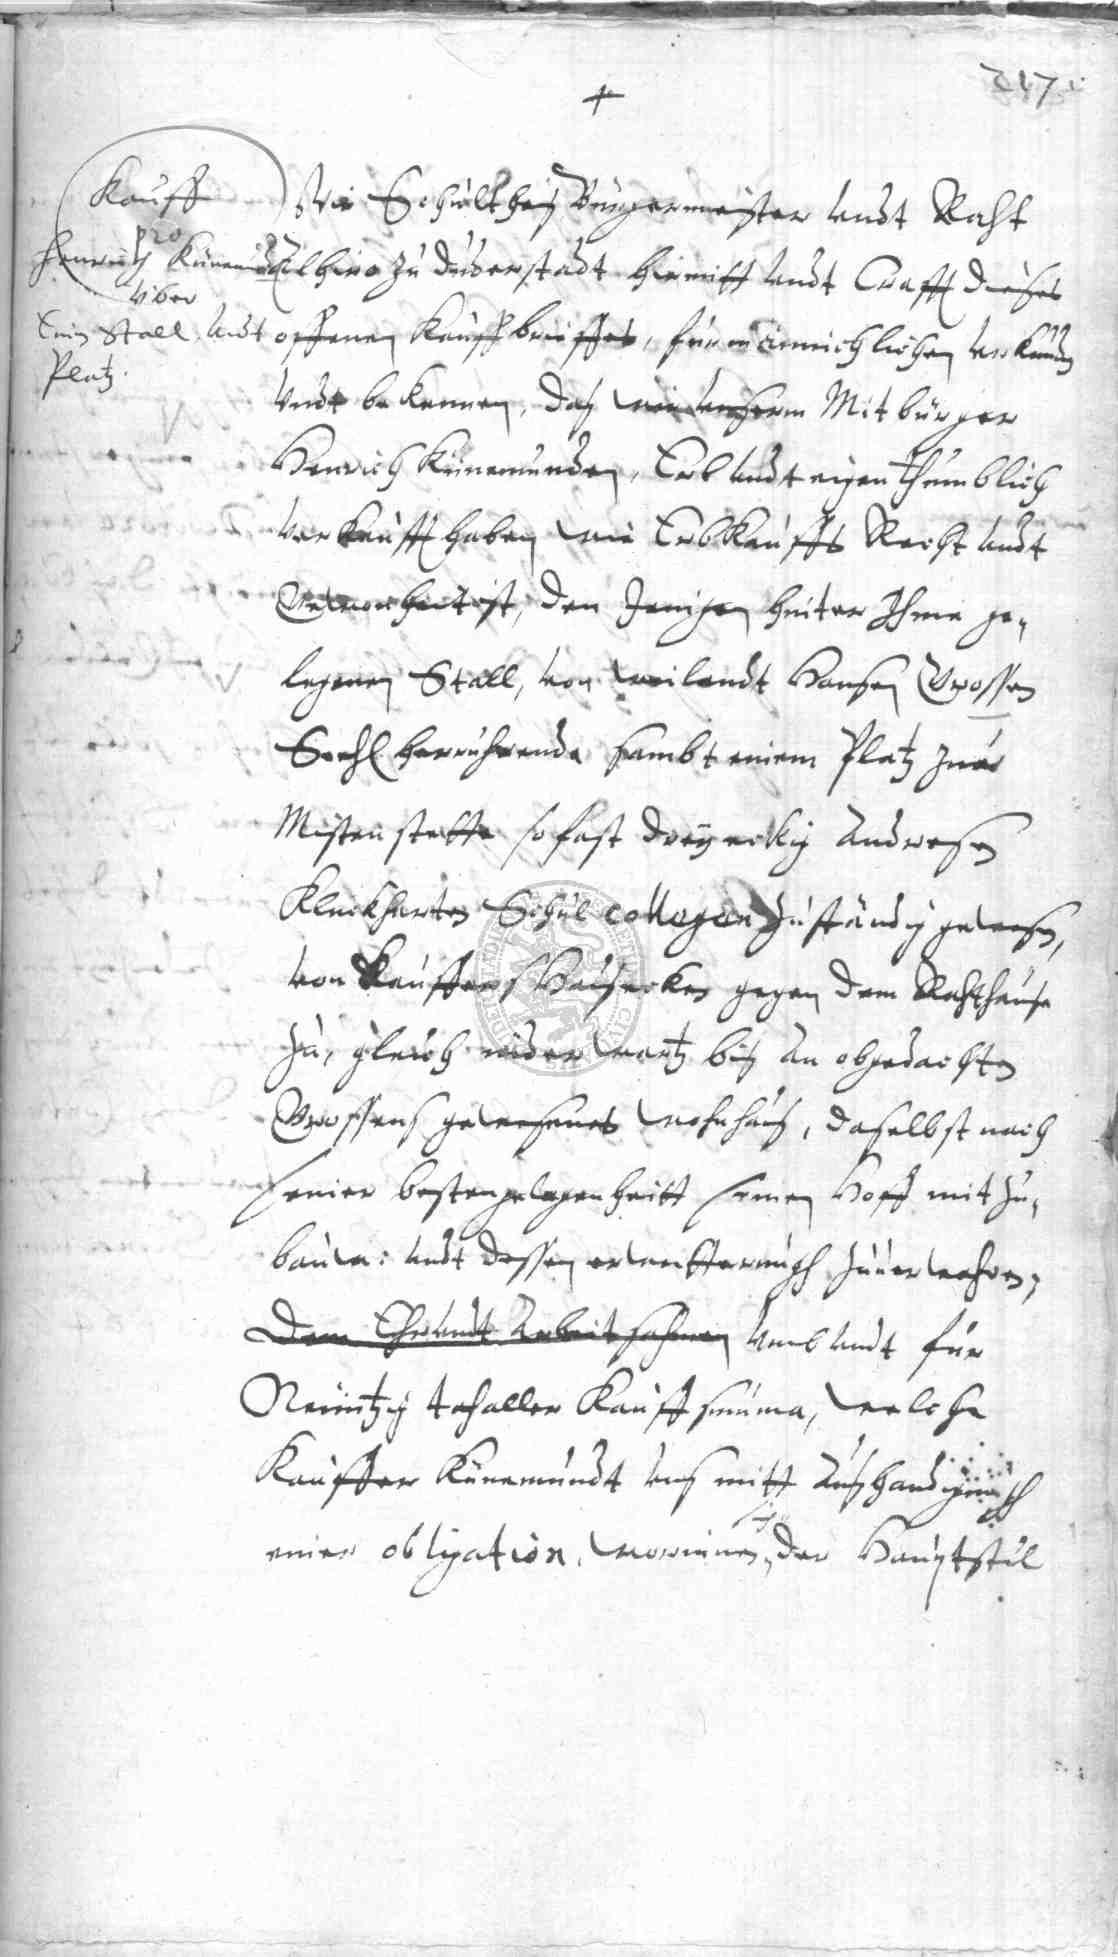 217.
+
Kauff
pro
Henrich Künemund
über
Ein Stall undt
Platz.
Wir Schultheiß Burgermeister undt Raht
Alhiro zu Duderstadt hiemitt undt Crafft dieses
offenen Kauffbrieffes, für männichlichen urkunden
undt bekennen, daß wir unserm Mitbürger
Henrich Künemunden, Erb undt eigenthumblich
verkaufft haben wie Erbkauffs Recht undt
Gewonheit ist, den Jenigen hinter Ihme ge,
legenen Stall, von weilandt Hansen Grossen
Seehl herruhrende sambt einem Platz zur
Mistenstette so fast dreyeckig Andresen
Kleckharten Schul collegen zuständig gewesen,
von Kauffers Haußecken gegen dem Rahthause
zu, gleich niderwartz biß an obgedachten
Grossens gewesenes wohnhauß, daselbst nach
seiner besten gelegenheitt seinen Hoff mit zu,
bauwe: undt dessen erweitterungh zuverwahren,
Dem Ehr undt Arbeitsahmen umb undt für
Neuntzig tahaller Kauffsumma, welche
Kauffer Künemundt uns mitt Außhandigungh
einer obligation, worinnen der Hauptstul